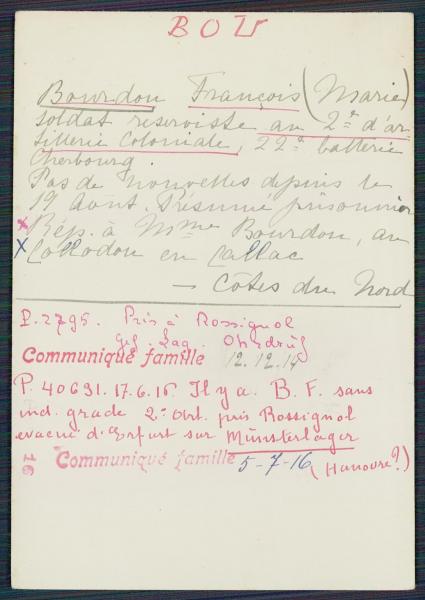 BOU
Bourdon François (Marie)
soldat réserviste au 2e d'ar
tillerie Coloniale, 22e batterie
Cherbourg.
Pas de nouvelles depuis le
19 Aout. Présumé prisonnier
x Rép. à Mme Bourdon, au
x Collodon en Callac
— Côtes du Nord
P. 2795. Pris à Rossignol
Gef. Lag. Ohrdruf
Communiqué famille 12.12.14
P. 40691. 17.6.16. Il y a. B. F. sans
ind. grade 2e Art. pris Rossignol
evacué d'Erfurt sur Münsterlager
16 Communiqué famille 5-7-16 (Hanovre?)